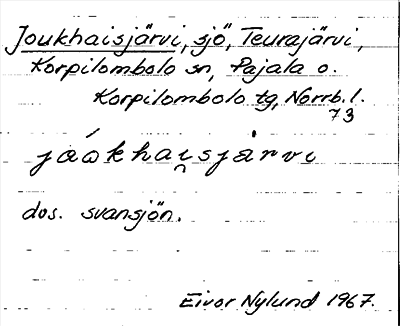 Joukhaisjärvi, sjö, Teurajärvi,
Korpilombolo sn, Pajala o.
Korpilombolo tg, Norrb. l.
73
jóωkhai̯sjärvi
dvs. svansjön.
Eivor Nylund 1967.